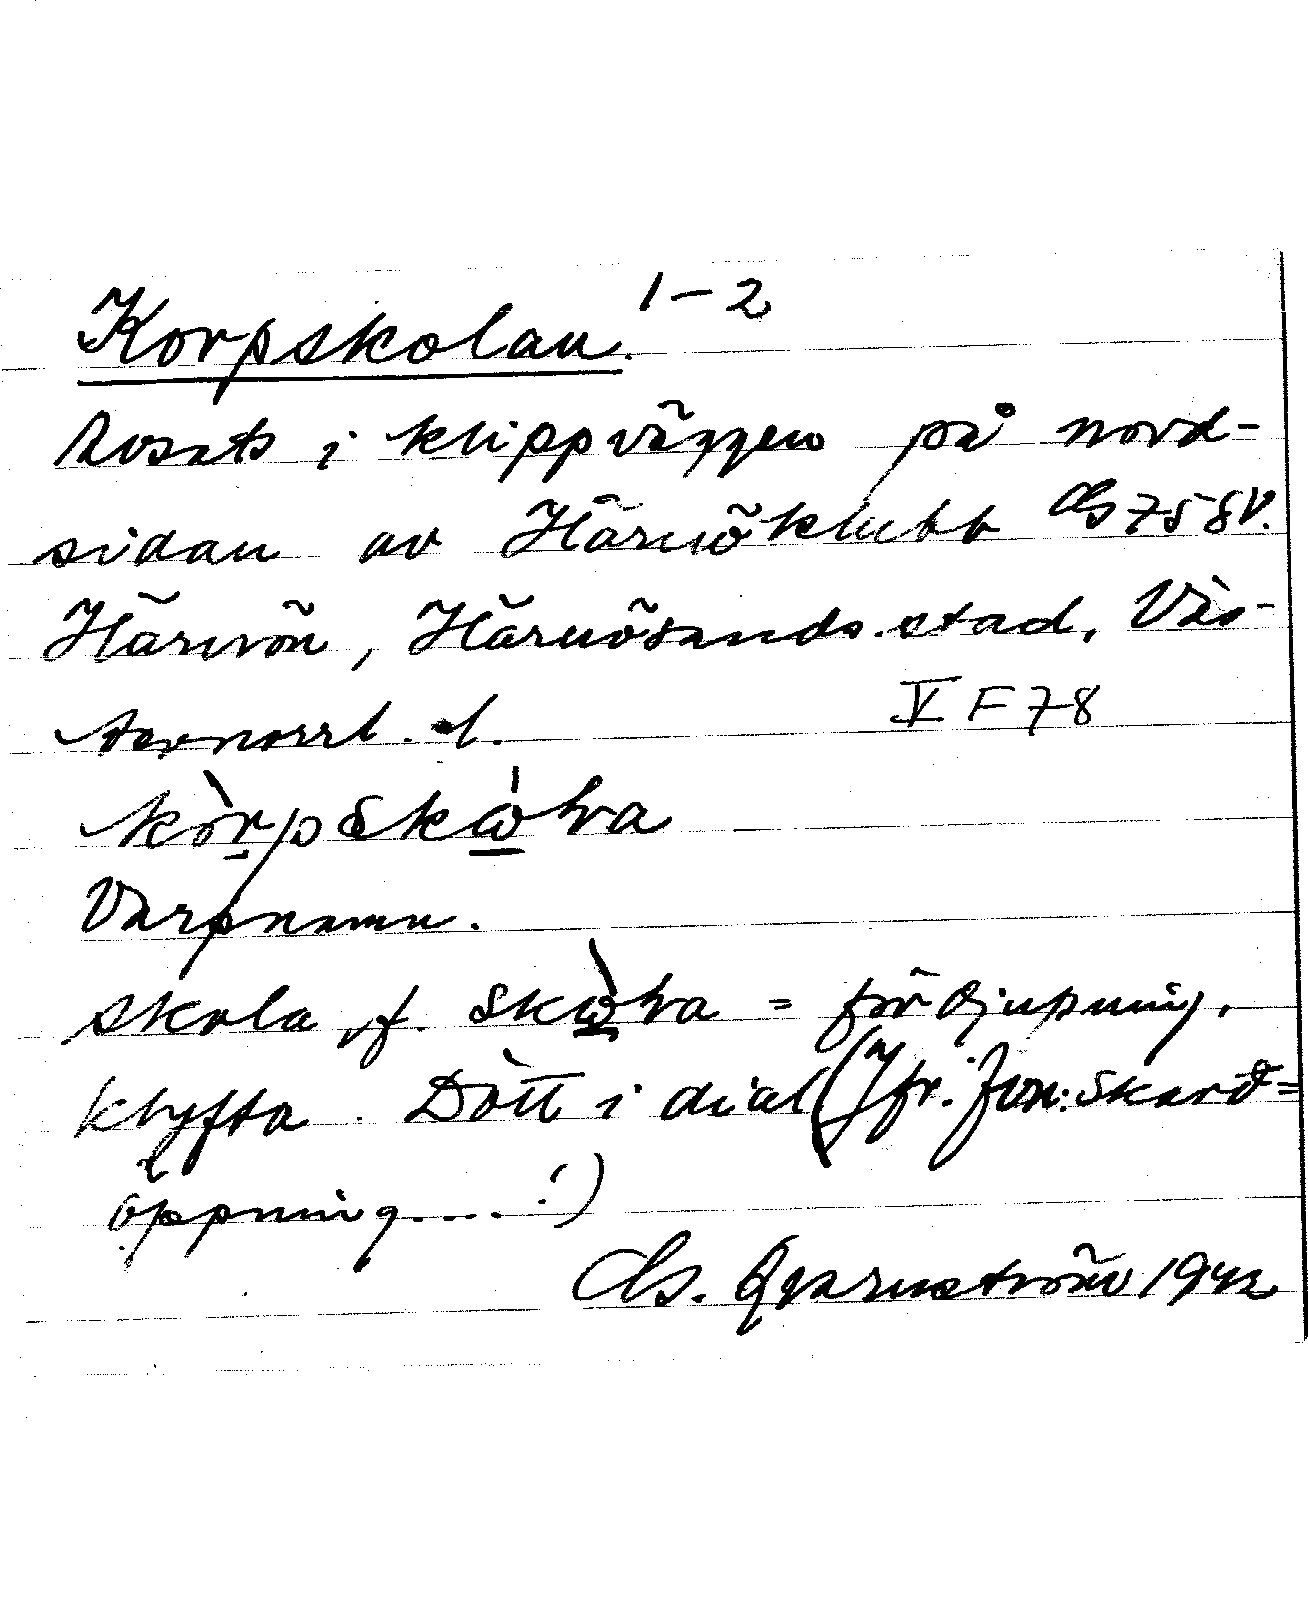 Korpskolan. 1-2
Avsats i klippväggen på nord-
sidan av Härnöklubb Cs 758V.
Härnön, Härnösands stad, Väs-
ternorrl. l.
V F 78
kòrpskωlva
Varpnamn.
skola, f. skωlva = fördjupning,
klyfta. Dött i dial (Jfr. Jon: Skarð=
öppning....!)
Cs. Qvarnström 1942